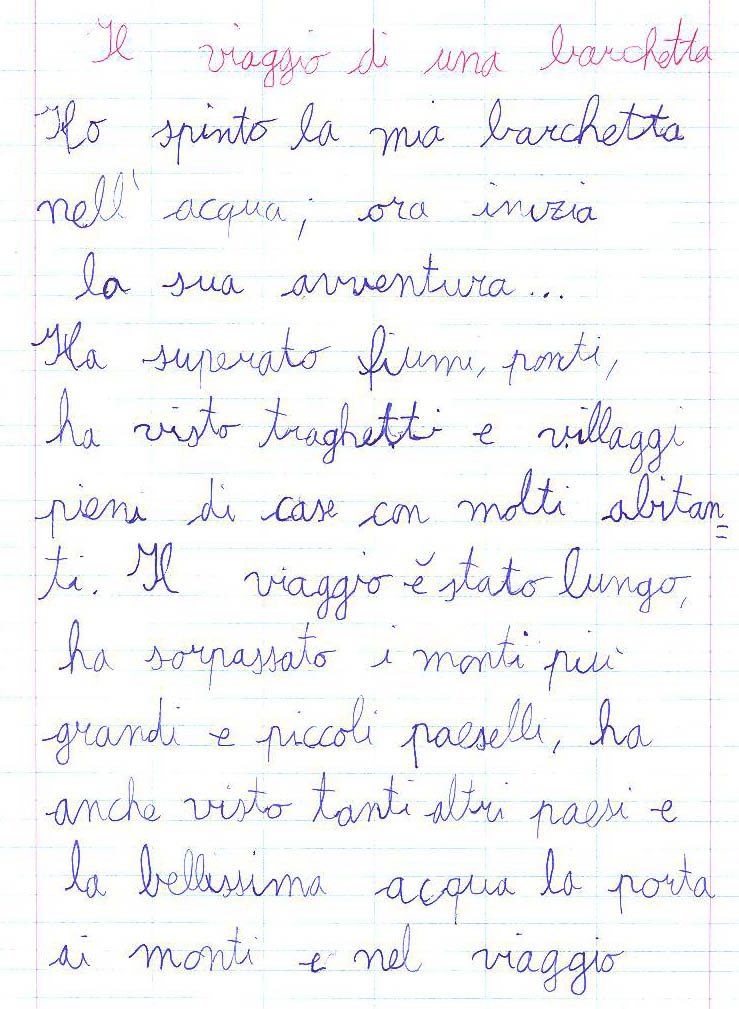 Il viaggio di una barchetta
Ho spinto la mia barchetta
nell' acqua; ora inizia
la sua avventura...
Ha superato fiumi, ponti,
ha visto traghetti e villaggi
pieni di case con molti abitan=
ti. Il viaggio è stato lungo,
ha sorpassato i monti più
grandi e piccoli paeselli, ha
anche visto tanti altri paesi e
la bellissima acqua la porta
ai monti e nel viaggio